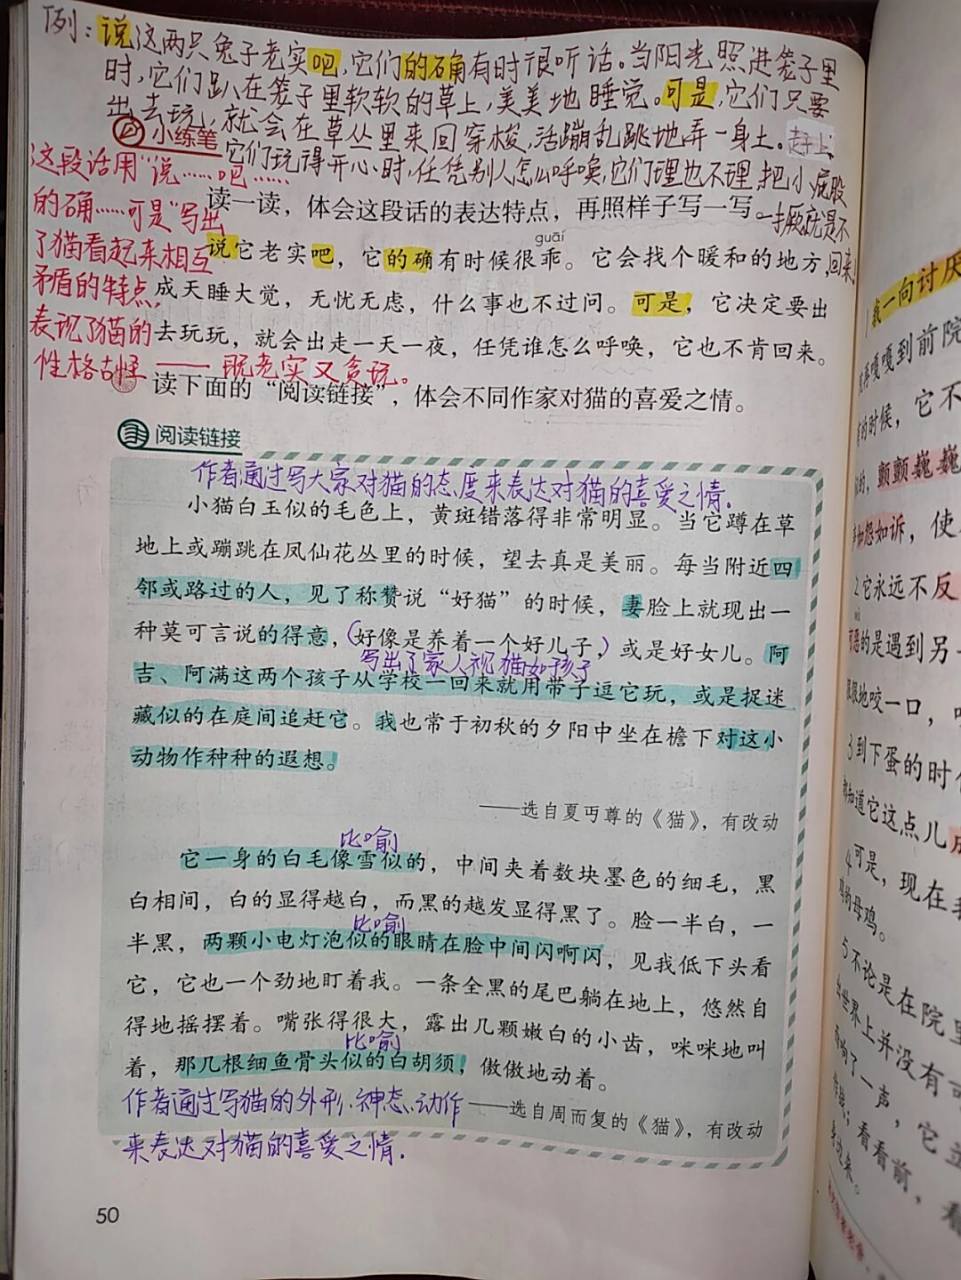 例：说这两只兔子老实吧，它们的确有时很听话。当阳光照进笼子里
时，它们趴在笼子里软软的草上，美美地睡觉。可是，它们只要
出去玩，就会在草丛里来回穿梭，活蹦乱跳地弄一身土。赶上
它们玩得开心时，任凭别人怎么呼唤，它们理也不理，把小屁股
一撅就是不
回来！
小练笔
这段话用“说……吧……
的确……可是”写出
了猫看起来相互
矛盾的特点，
表现了猫的
性格古怪——既老实又贪玩。
读一读，体会这段话的表达特点，再照样子写一写。
guāi
说它老实吧，它的确有时候很乖。它会找个暖和的地方，
成天睡大觉，无忧无虑，什么事也不过问。可是，它决定要出
去玩玩，就会出走一天一夜，任凭谁怎么呼唤，它也不肯回来。
读下面的“阅读链接”，体会不同作家对猫的喜爱之情。
阅读链接
作者通过写大家对猫的态度来表达对猫的喜爱之情。
小猫白玉似的毛色上，黄斑错落得非常明显。当它蹲在草
地上或蹦跳在凤仙花丛里的时候，望去真是美丽。每当附近四
邻或路过的人，见了称赞说“好猫”的时候，妻脸上就现出一
种莫可言说的得意，（好像是养着一个好儿子，）或是好女儿。阿
写出了家人视猫如孩子
吉、阿满这两个孩子从学校一回来就用带子逗它玩，或是捉迷
藏似的在庭间追赶它。我也常于初秋的夕阳中坐在檐下对这小
动物作种种的遐想。
——选自夏丏尊的《猫》，有改动
比喻
它一身的白毛像雪似的，中间夹着数块墨色的细毛，黑
白相间，白的显得越白，而黑的越发显得黑了。脸一半白，一
比喻
半黑，两颗小电灯泡似的眼睛在脸中间闪啊闪，见我低下头看
它，它也一个劲地盯着我。一条全黑的尾巴躺在地上，悠然自
得地摇摆着。嘴张得很大，露出几颗嫩白的小齿，咪咪地叫
比喻
着，那几根细鱼骨头似的白胡须，傲傲地动着。
作者通过写猫的外形、神态、动作
——选自周而复的《猫》，有改动
来表达对猫的喜爱之情。
50
我一向讨厌
嘎嘎到前院
的时候，它不
颤颤巍巍
如怨如诉，使
2它永远不反
的是遇到另一
狠狠地咬一口，
3到下蛋的时
知道它这点儿成
4可是，现在我
的母鸡。
5不论是在院里
世界上并没有可
响了一声，它立
看看前，看